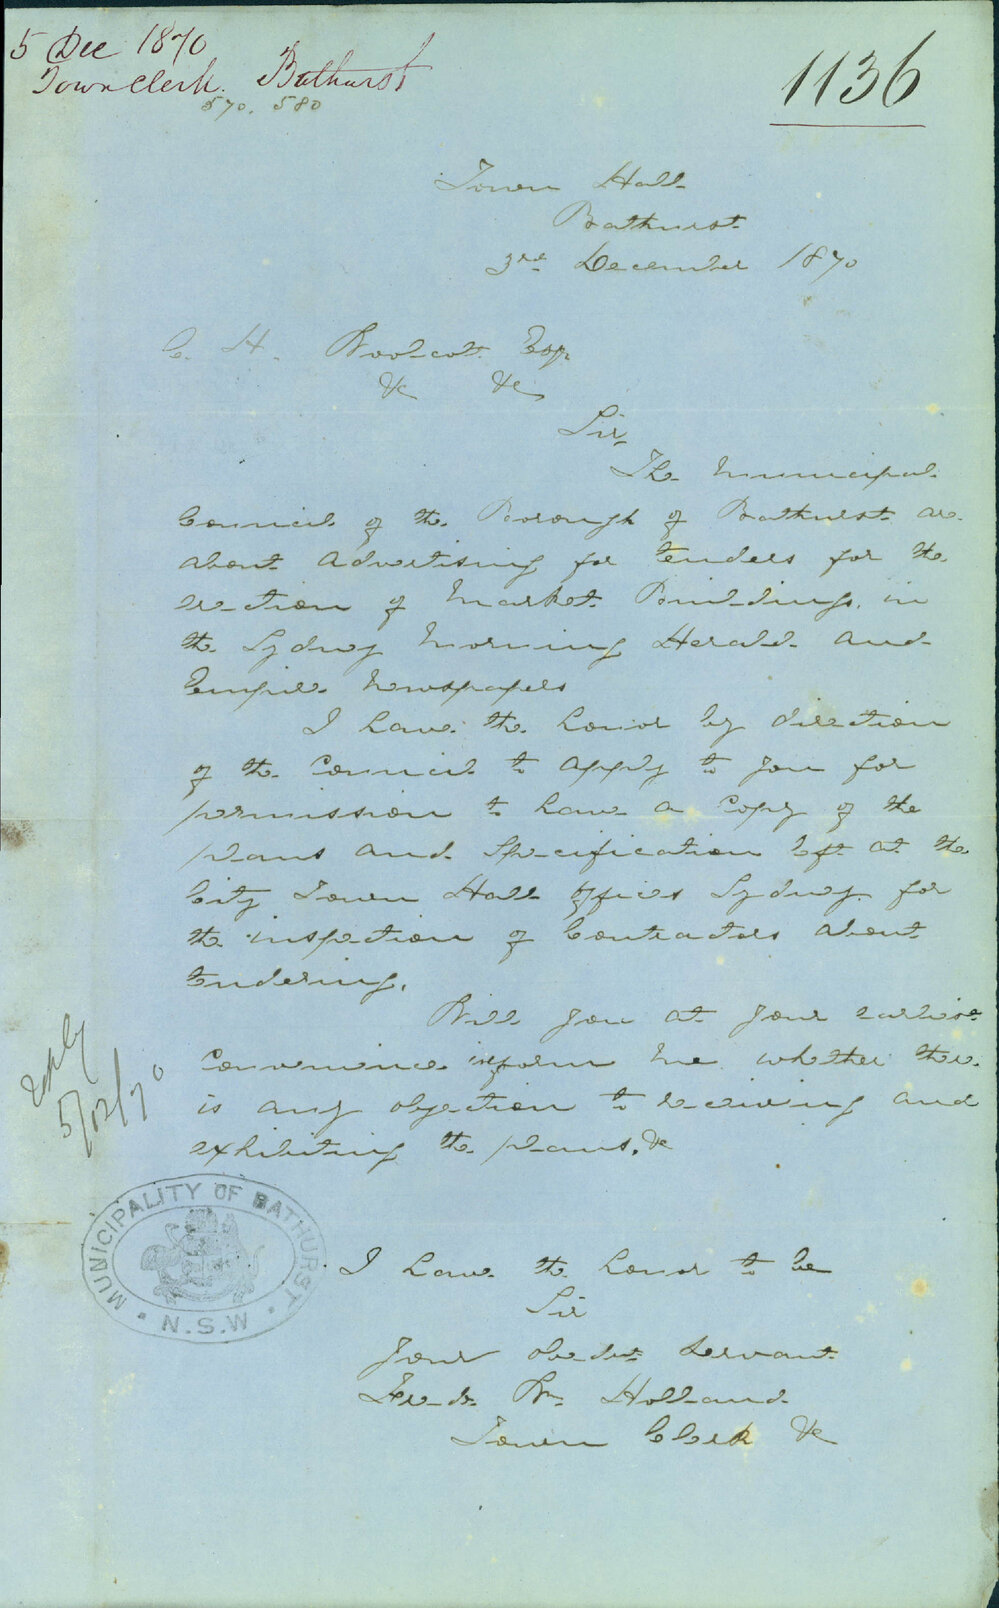 5 Dec 1870
Town Clerk. Bathurst
570. 580
1136
Town Hall
Bathurst
3rd December 1870
C. H. Woolcott Esq
&c &c
Sir,
The Municipal
Council of the Borough of Bathurst are
about advertising for tenders for the
erection of Market Buildings, in
the Sydney Morning Herald and
Empire Newspapers
I have the honor by direction
of the Council to apply to you for
permission to have a copy of the
plans and specification left at the
City Town Hall Offices Sydney for
the inspection of Contractors about
tendering.
Will you at your earliest
convenience inform me whether there
is any objection to receiving and
exhibiting the plans, &c
reply
5/12/70
MUNICIPALITY OF BATHURST
N.S.W
I have the honor to be
Sir
Your obedt servant
Fredk Wm Holland
Town Clerk &c